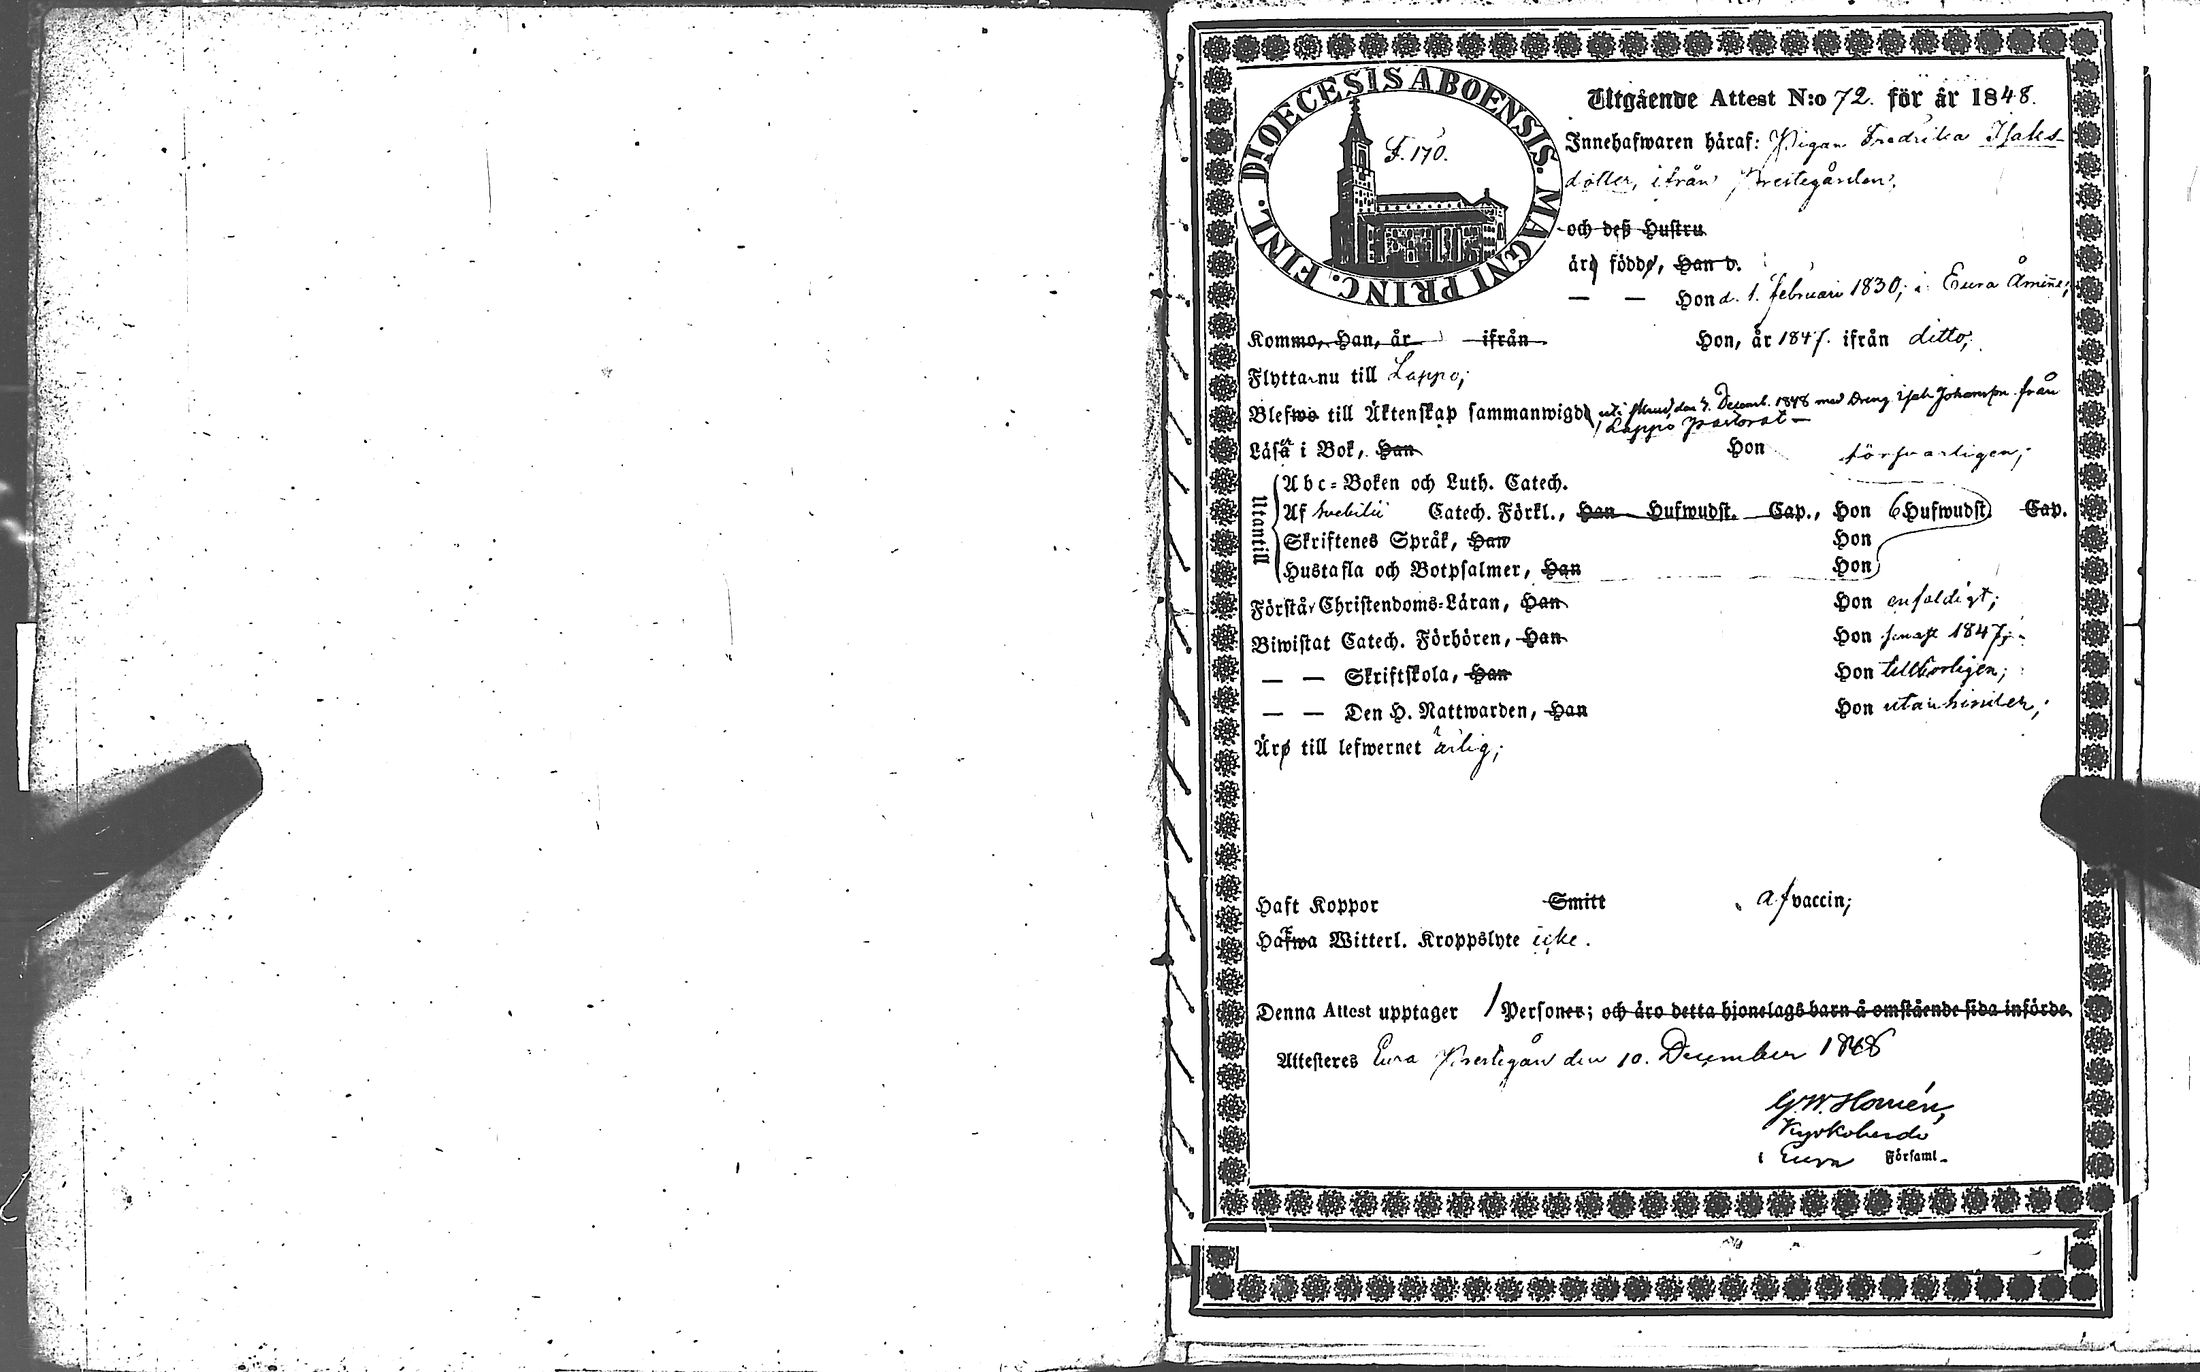 DIOECESIS ABOENSIS. MAGNI PRINC. FINL.
F. 170.
Utgående Attest N:o 72. för år 1848.
Innehafwaren häraf: Pigan Fredrika Isaks-
dotter, ifrån Prestegården,
och deß Hustru
äro födde, Han d.
— — Hon d. 1. februari 1830, i Eura Åminne;
Kommo, Han, år ifrån Hon, år 1847. ifrån ditto;
Flytta nu till Lappo;
Blefwo till Äktenskap sammanwigde, den 7. Decemb. 1848 med Dreng Isak Johansson från
Lappo pastorat —
Läsa i Bok, Han Hon försvarligen;
Utantill
Abc-Boken och Luth. Catech.
Af Svebilii Catech. Förkl., Han Hufwudst. Cap., Hon 6 Hufwudst. Cap.
Skriftenes Språk, Han Hon
Hustafla och Botpsalmer, Han Hon
Förstår Christendoms-Läran, Han Hon enfaldigt;
Biwistat Catech. Förhören, Han Hon senast 1847;
— — Skriftskola, Han Hon tillbörligen;
— — Den H. Nattwarden, Han Hon utan hinder;
Äro till lefwernet ärlig;
Haft Koppor Smitt af vaccin;
Hafwa Witterl. Kroppslyte icke.
Denna Attest upptager 1 Personer; och äro detta hjonelags barn å omstående sida införde.
Attesteres Eura Prestegård den 10. December 1848
G.W. Homén,
Kyrkoherde
i Eura Församl.